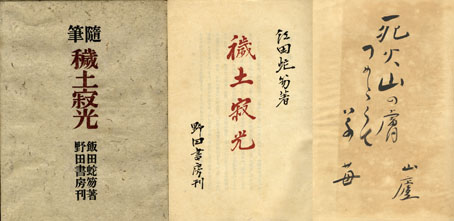 隨筆
穢土寂光
飯田蛇笏著
野田書房刊
飯田蛇笏著
穢土寂光
野田書房刊
死火山の膚
つめたくて
草苺
山廬